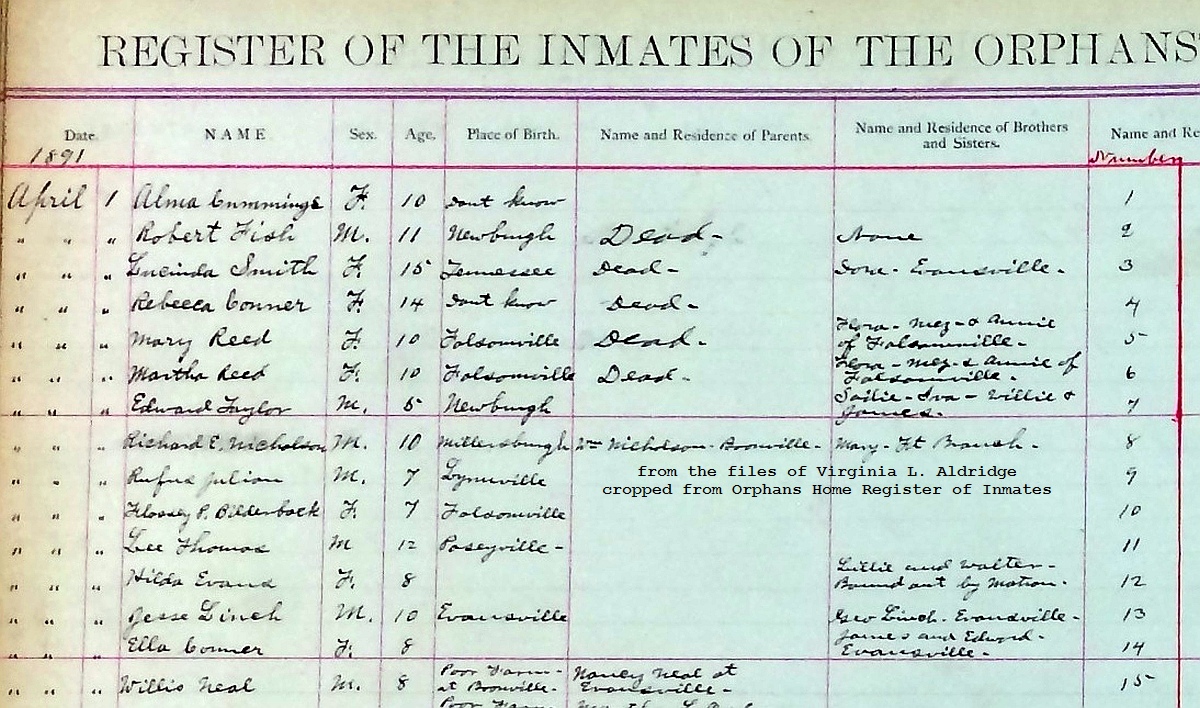 REGISTER OF THE INMATES OF THE ORPHANS'
Date. NAME. Sex. Age. Place of Birth. Name and Residence of Parents. Name and Residence of Brothers and Sisters. Name and Re
1891 Number
April 1 Alma Cummings F. 10 Dont know 1
" " " Robert Fish M. 11 Newburgh Dead - None 2
" " " Lucinda Smith F. 15 Tennessee Dead - Evansville - 3
" " " Rebecca Conner F. 14 Dont know Dead - 4
Flora - Meg - & Annie
" " " Mary Reed F. 10 Folsomville Dead - of Folsomville - 5
Flora - Meg - & Annie of
" " " Martha Reed F. 10 Folsomville Dead - Folsomville - 6
Sallie - Iva - Willie &
" " " Edward Taylor M. 5 Newburgh James - 7
" " " Richard E. Nicholson M. 10 Millersburgh Wm Nicholson - Boonville - Mary - Ft Branch - 8
from the files of Virginia L. Aldridge
" " " Rufus Julian M. 7 Lynnville 9
cropped from Orphans Home Register of Inmates
" " " Flossey P. Bilderback F. 7 Folsomville 10
" " " Lee Thomas M 12 Poseyville - 11
Lillie and Walter -
" " " Hilda Evans F. 8 Bound out by Matron - 12
" " " Jesse Linch M. 10 Evansville Geo Linch - Evansville - 13
James and Edward -
" " " Ella Conner F. 8 Evansville - 14
Poor Farm - Nancy Neal at
" " " Willis Neal M. 8 at Boonville - Evansville - 15
Poor Farm